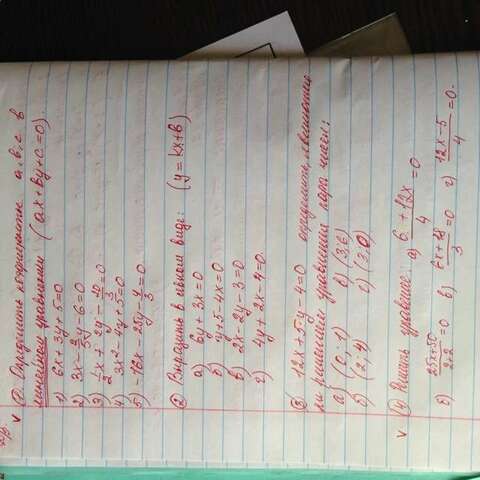 ① Определить коэффициенты a, b, c в
линейном уравнении (ax + by + c = 0).
1) 6x + 3y - 5 = 0
2) 3x - 2/5 y - 6 = 0
3) 1/2 x + 2y - 10/3 = 0
4) 3x² - 4y + 5 = 0
5) -16x - 25y - 4/3 = 0
② Выразить в явном виде: (y = kx + b)
а) 6y + 3x = 0
б) y + 5 - 4x = 0
в) 2x - 2y - 3 = 0
г) 4y + 2x - 4 = 0
③ 12x + 5y - 4 = 0 определить является
ли решением уравнения пара чисел:
а) (0; -1) в) (3; 6)
б) (2; 4) г) (3; 0)
④ Решить уравнение: а) (6 + 12x)/4 = 0
б) = 0 в) = 0 г) (12x - 5)/4 = 0.